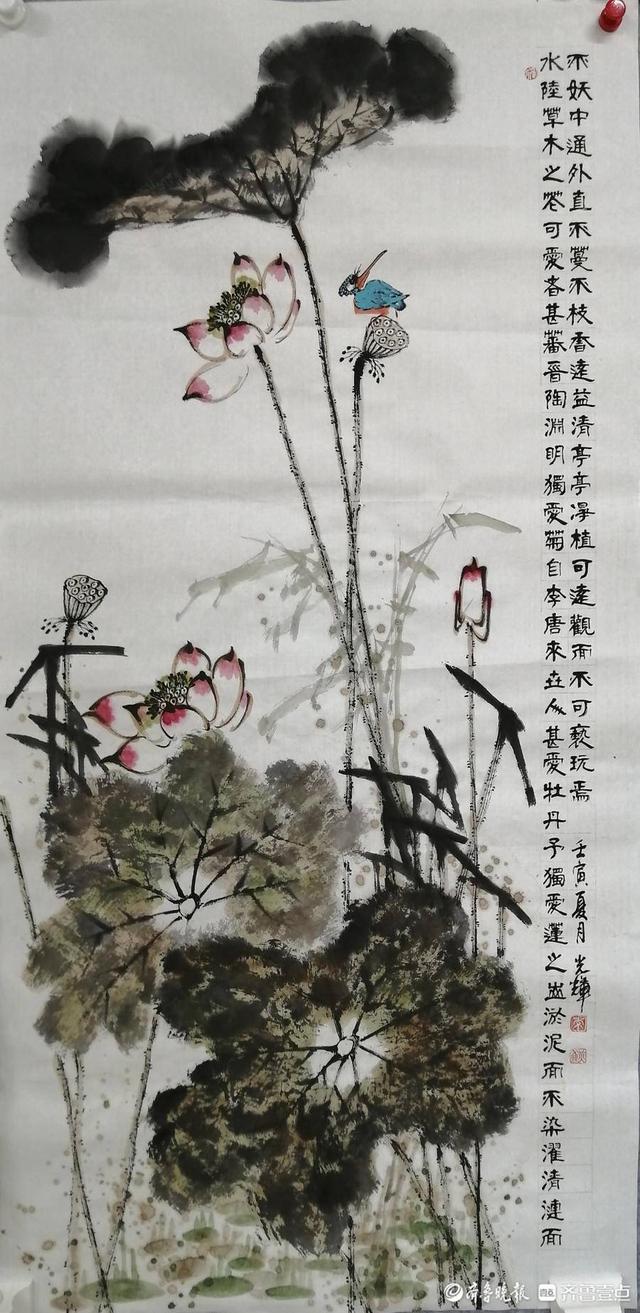 水陸草木之花可愛者甚蕃晉陶淵明獨愛菊自李唐來世人甚愛牡丹予獨愛蓮之出淤泥而不染濯清漣而
不妖中通外直不蔓不枝香遠益清亭亭淨植可遠觀而不可褻玩焉
壬寅夏月 光輝
齐鲁晚报 齐鲁壹点